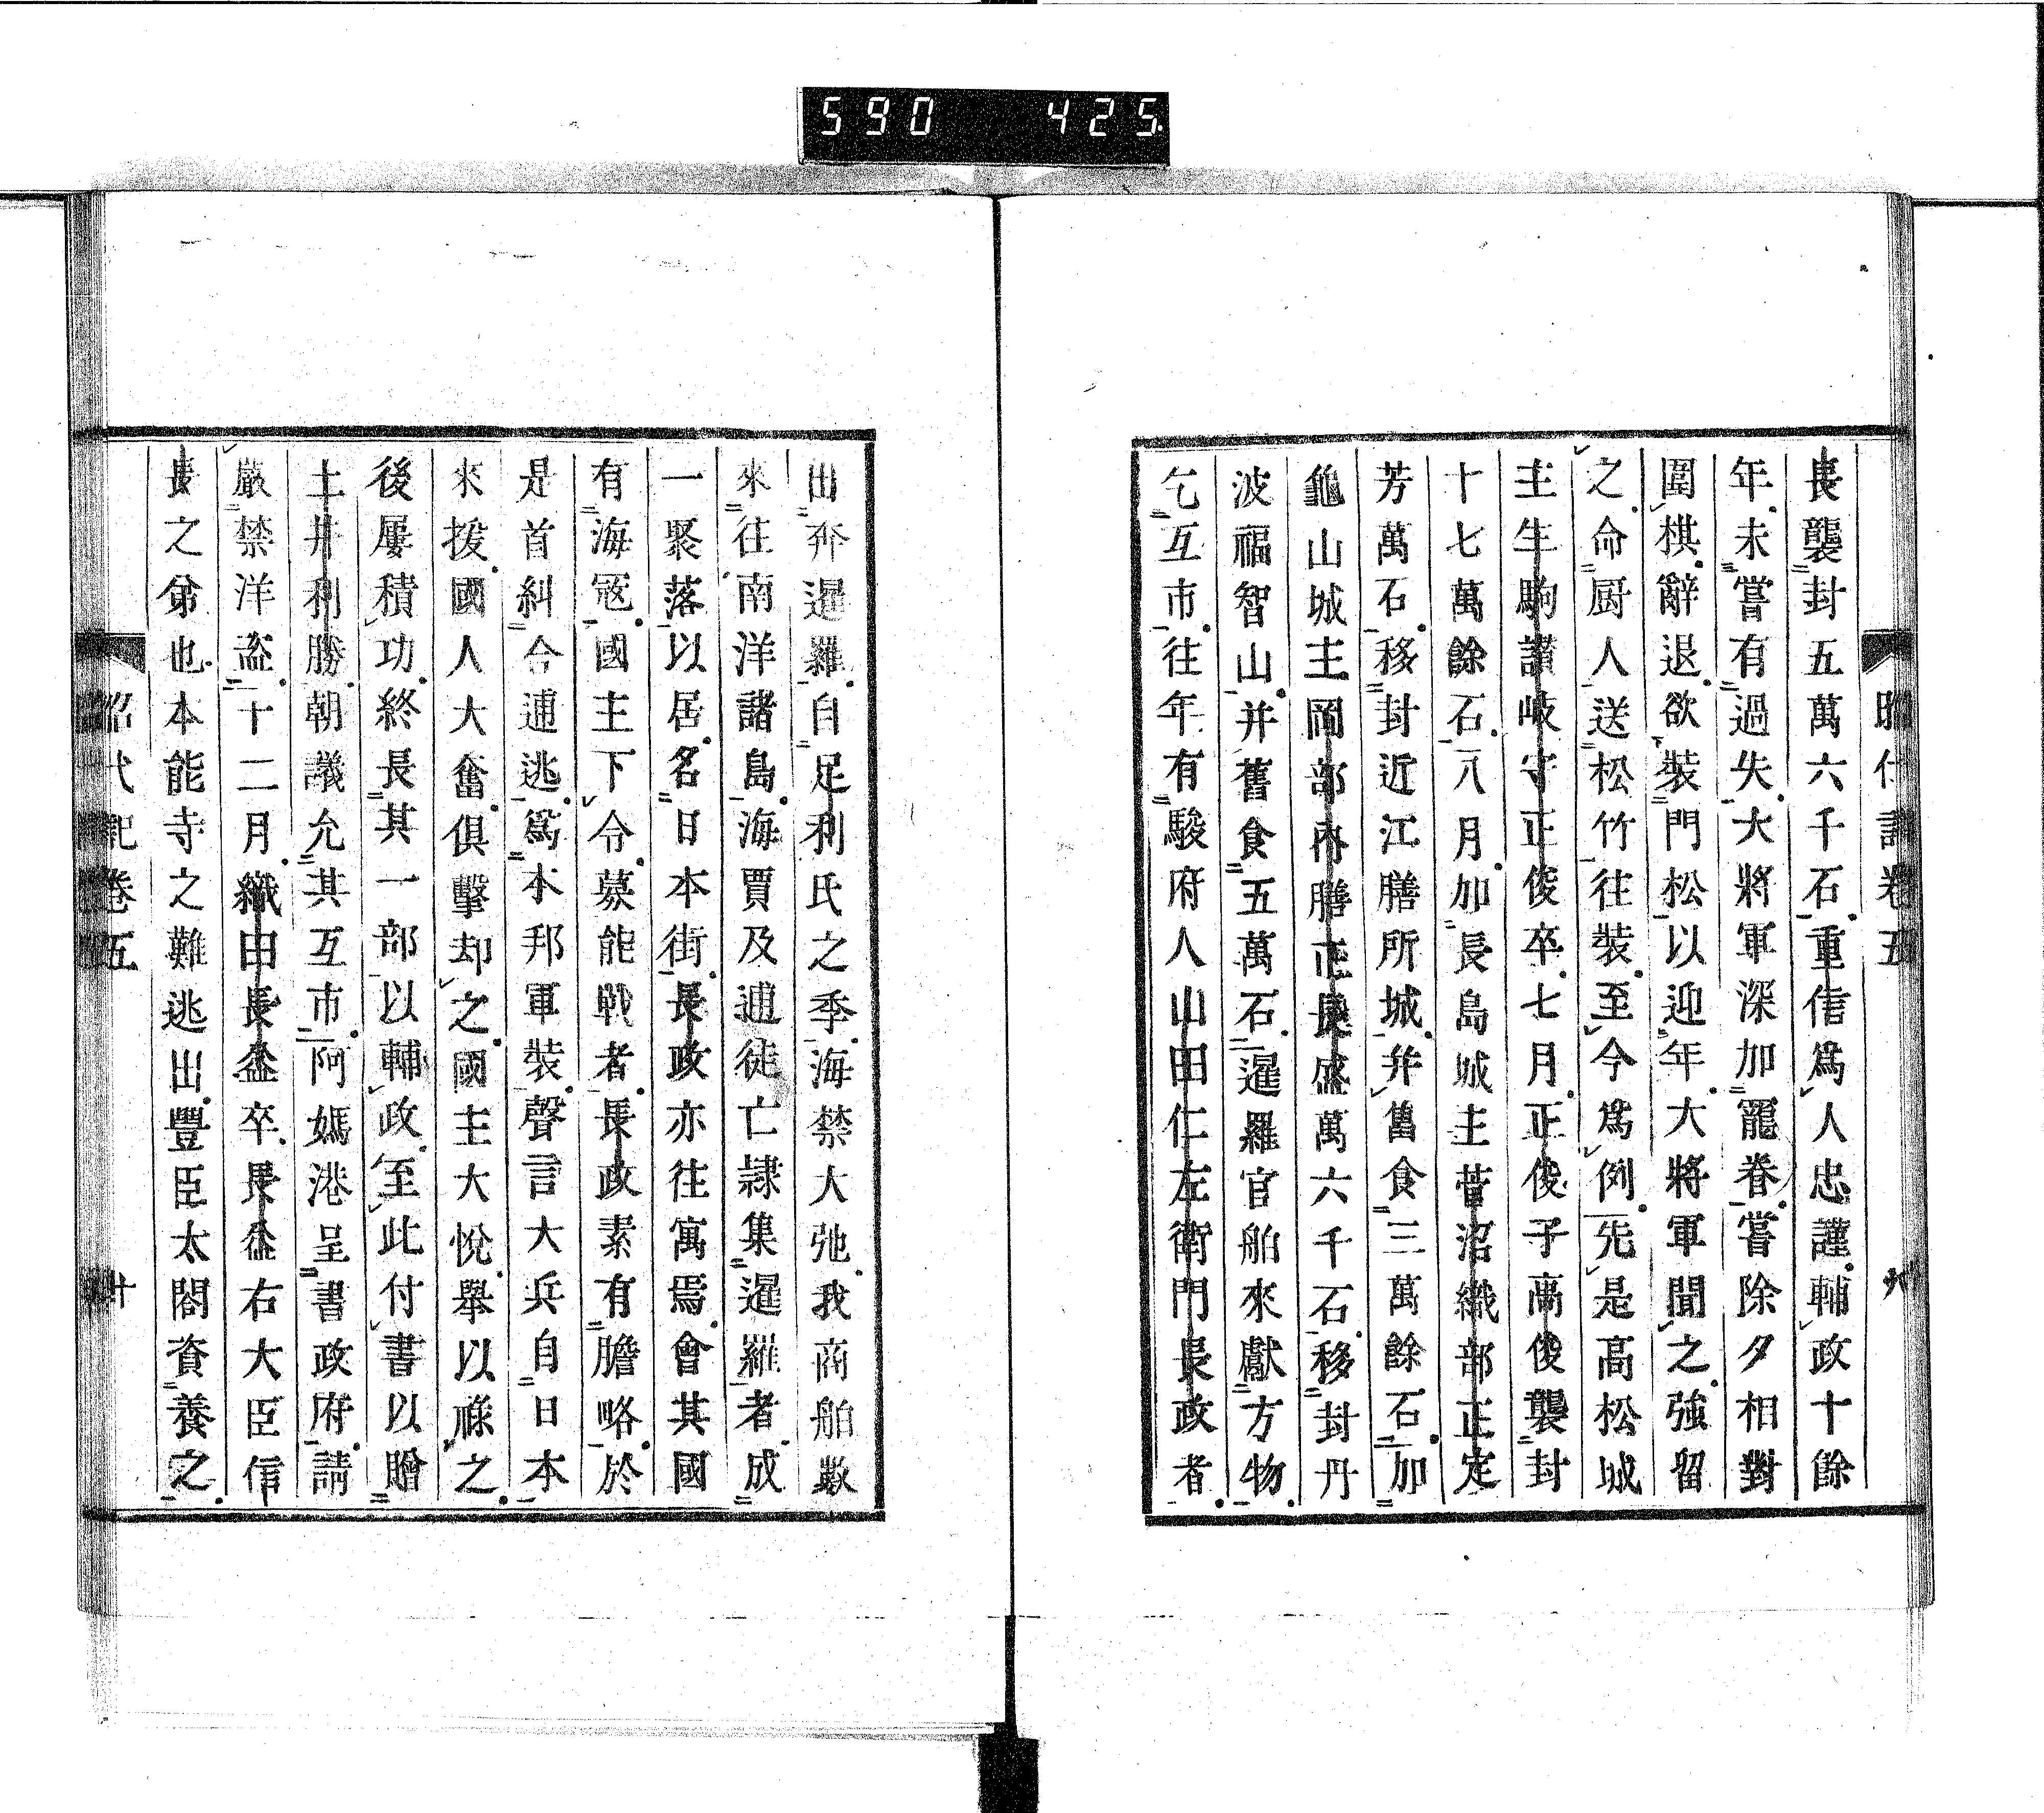 590 425
昭代記卷五 八
長襲封五萬六千石重信爲人忠謹輔政十餘
年未嘗有過失大將軍深加寵眷嘗除夕相對
圍棋辭退欲裝門松以迎年大將軍聞之強留
之命厨人送松竹往裝至今爲例先是高松城
主生駒讃岐守正俊卒七月正俊子高俊襲封
十七萬餘石八月加長島城主菅沼織部正定
芳萬石移封近江膳所城并舊食三萬餘石加
龜山城主岡部內膳正長盛萬六千石移封丹
波福智山并舊食五萬石暹羅官舶來獻方物
乞互市往年有駿府人山田仁左衛門長政者
出奔暹羅自足利氏之季海禁大弛我商舶數
來往南洋諸島海賈及逋徒亡隷集暹羅者成
一聚落以居名日本街長政亦往寓焉會其國
有海冦國主下令募能戰者長政素有膽略於
是首糾合逋逃爲本邦軍裝聲言大兵自日本
來援國人大奮俱擊却之國主大悅舉以祿之
後屢積功終長其一部以輔政至此付書以贈
土井利勝朝議允其互市阿媽港呈書政府請
嚴禁洋盜十二月織田長益卒長益右大臣信
長之弟也本能寺之難逃出豐臣太閤資養之
昭代記卷五 十